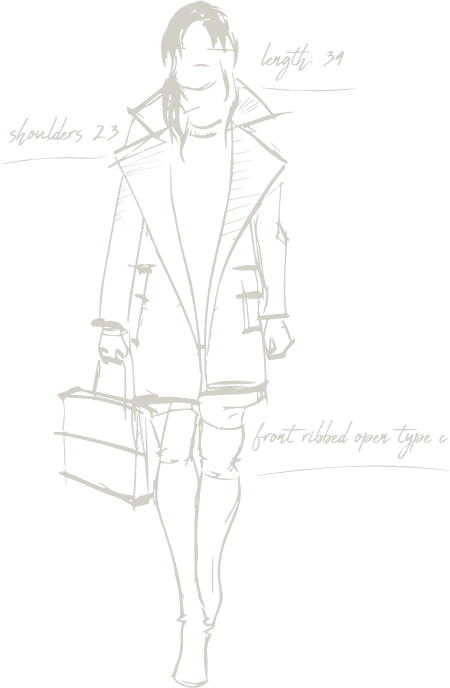 length: 39
shoulders 23
front ribbed open type c